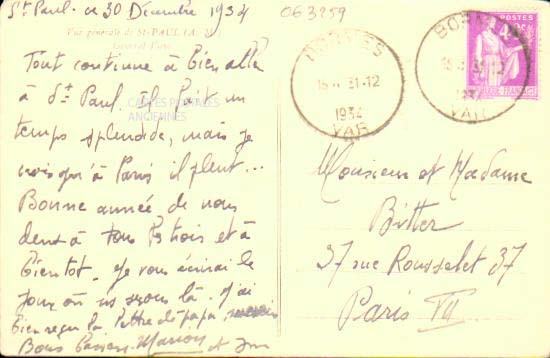 St Paul. ce 30 Décembre 1934
063259
Vue générale de St-PAUL (A.-M.)
Tout continue à bien aller
à St Paul. Il fait un
temps splendide, mais je
crois qu'à Paris il pleut...
Bonne année de nous
deux à tous trois et à
bientôt. Je vous écrirai le
jour où ns serons là. J'ai
bien reçu la lettre de papa
Bons baisers. Marion et
CARTES POSTALES
ANCIENNES
BORMES
31-12
1934
VAR
BORMES
31-12
1934
VAR
POSTES
Monsieur et Madame
Bitter
37 rue Rousselet 37
Paris VII